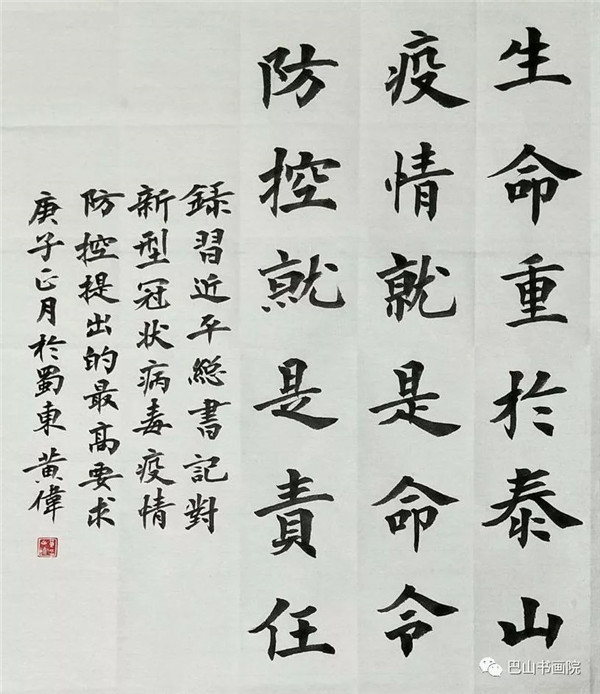 生命重於泰山
疫情就是命令
防控就是責任
録習近平総書記對
新型冠状病毒疫情
防控提出的最高要求
庚子正月於蜀東黄偉
巴山书画院